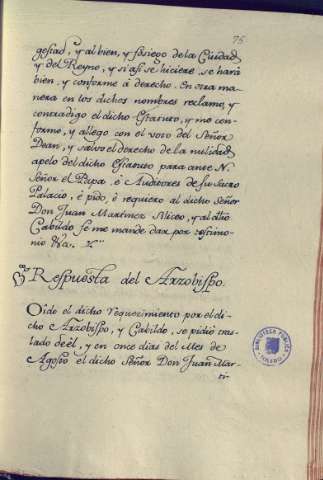 75
gestad, y al bien, y sosiego de la Ciudad
y del Reyno, y si asi se hiciere se hará
bien, y conforme á derecho. En otra ma-
nera en los dichos nombres reclamo, y
contradigo el dicho Estatuto, y me con-
formo, y allego con el voto del Señor
Dean, y salvo el derecho de la nulidad
apelo del dicho Estatuto para ante N.
Señor el Papa, é Auditores de su Sacro
Palacio, é pido, é requiero al dicho Señor
Don Juan Martinez Siliceo, y al dho
Cabildo se me mande dar por testimo-
nio &a.
Respuesta del Arzobispo.
Oido el dicho requerimiento por el di-
cho Arzobispo, y Cabildo, se pidió tras-
lado de él, y en once dias del Mes de
Agosto el dicho Señor Don Juan Mar-
ti-
BIBLIOTECA PUBLICA
TOLEDO